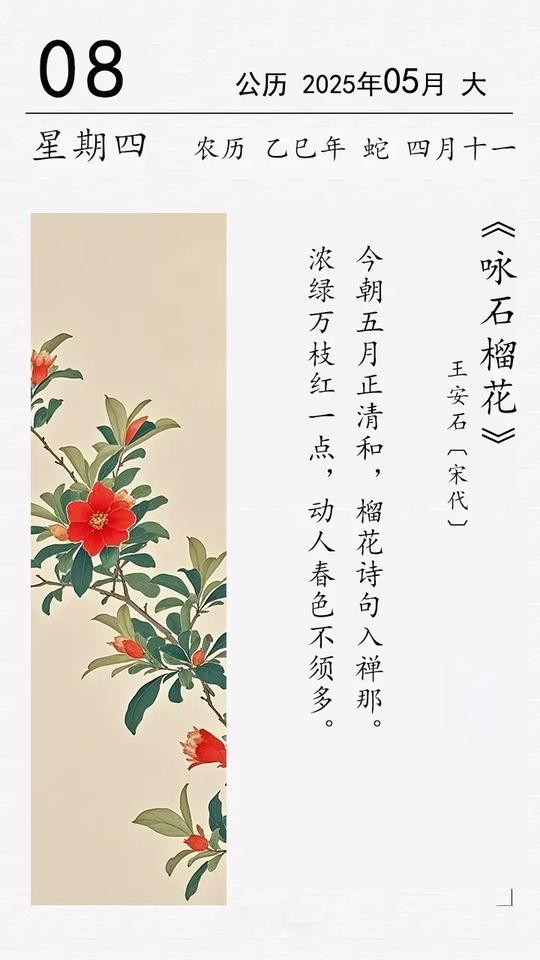 08
公历 2025年05月 大
星期四 农历 乙巳年 蛇 四月十一
《咏石榴花》
王安石〔宋代〕
今朝五月正清和，榴花诗句入禅那。
浓绿万枝红一点，动人春色不须多。